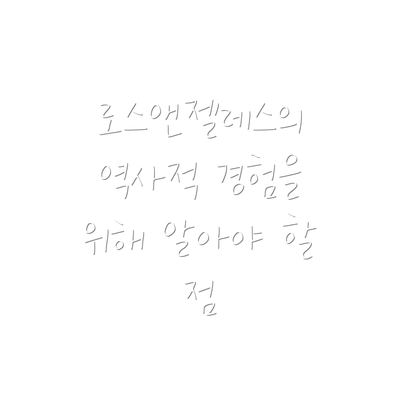 로스앤젤레스의
역사적 경험을
위해 알아야 할
점